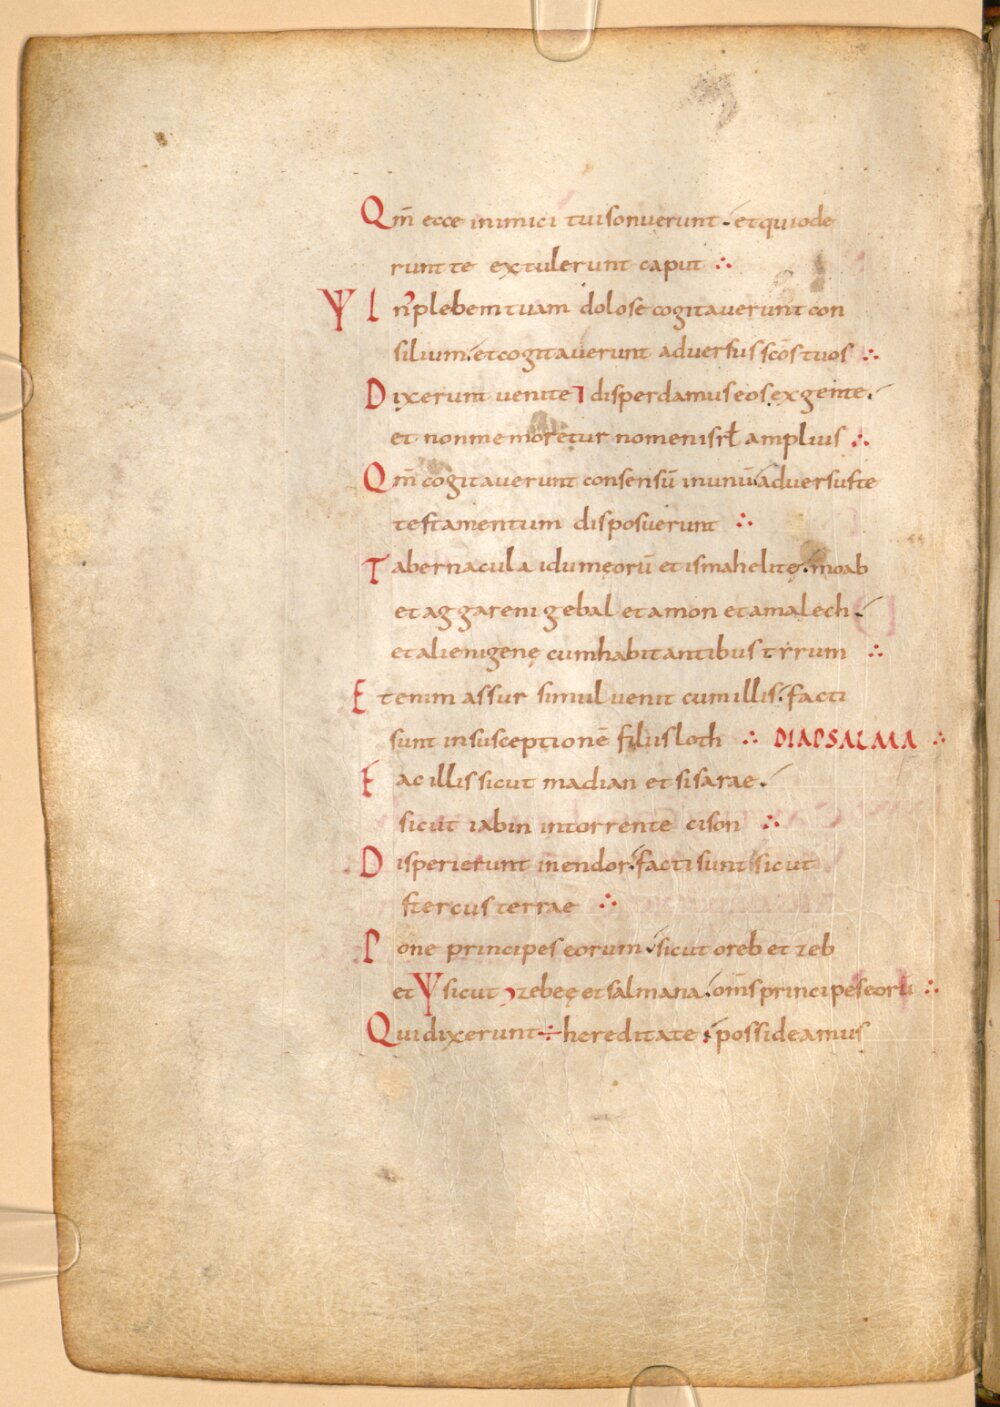 Qm̄ ecce inimici tui sonuerunt. et qui ode
runt te extulerunt caput ∴
Ψ In plebem tuam dolose cogitauerunt con
silium. et cogitauerunt aduersus sc̄os tuos ∴
Dixerunt uenite ⁊ disperdamus eos ex gente.
et non memoretur nomen isrł amplius ∴
Qm̄ cogitauerunt consensū in unū. aduersus te
testamentum disposuerunt ∴
Tabernacula idumęorū et ismahelitę. moab
et aggareni gebal et amon et amalech.
et alienigenę cum habitantibus tyrum ∴
Etenim assur simul uenit cum illis. facti
sunt in susceptionē filiis loth ∴ DIAPSALMA ∴
Fac illis sicut madian et sisarae.
sicut iabin in torrente cison ∴
Disperierunt in endor. facti sunt sicut
stercus terrae ∴
Pone principes eorum. sicut oreb et zeb
et Ψ sicut zebeę et salmana. om̄s principes eorū ∴
Qui dixerunt ÷ hereditate possideamus